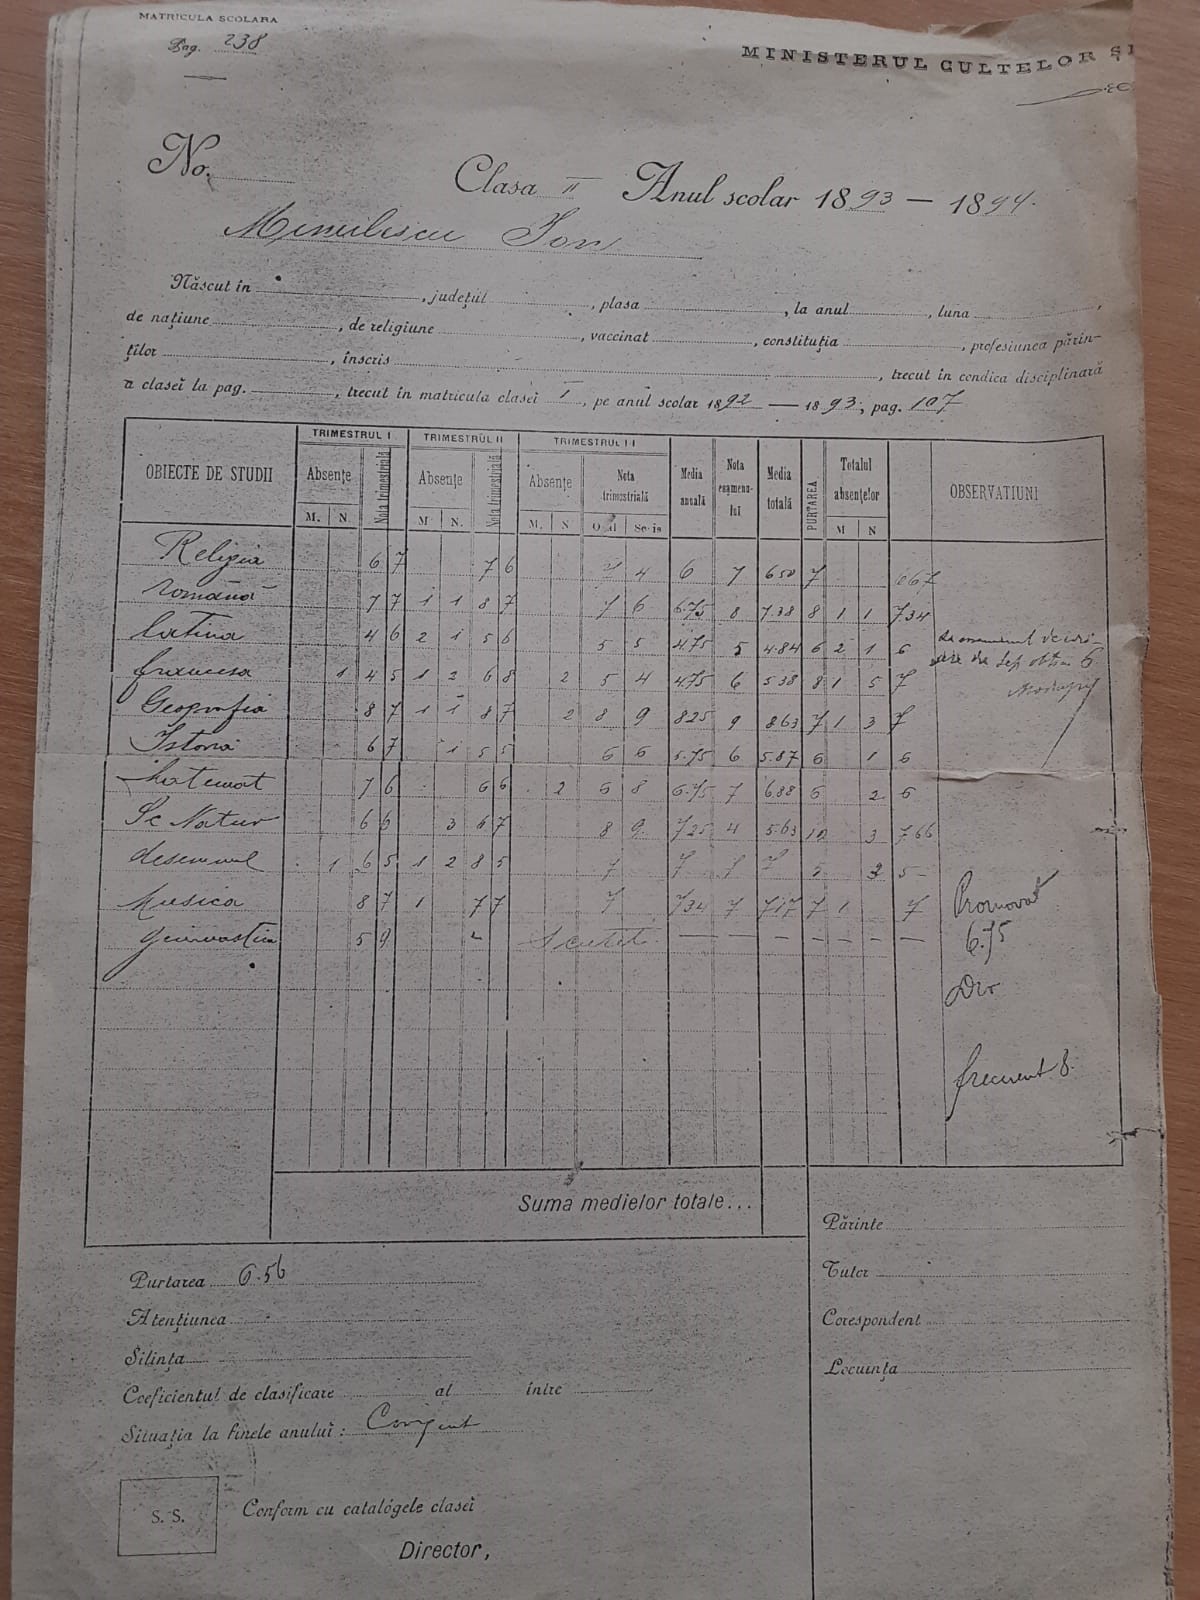 MATRICULA SCOLARA
Pag. 238
MINISTERUL CULTELOR ȘI
No.
Clasa II Anul scolar 1893 — 1894.
Minulescu Ion
Născut în , județul , plasa , la anul , luna ,
de națiune , de religiune , vaccinat , constituția , profesiunea părin-
ților , înscris , trecut în condica disciplinară
a clasei la pag. , trecut în matricula clasei I , pe anul scolar 1892 — 1893, pag. 107
OBIECTE DE STUDII TRIMESTRUL I TRIMESTRUL II TRIMESTRUL III Media anuală Nota esamenu-lui Media totală PURTAREA Totalul absențelor OBSERVATIUNI
Absențe Nota trimestrială Absențe Nota trimestrială Absențe Nota trimestrială
M. N. M N. M. N Scris M N
Religia 6 7 7 6 7 4 6 7 6 50 7 6 67
Română 7 7 1 1 8 7 7 6 6.75 8 7.38 8 1 1 7.34
Latina 4 6 2 1 5 6 5 5 4.75 5 4.84 6 2 1 6
francesa 1 4 5 1 2 6 8 2 5 4 4.75 6 5.38 8 1 5 7
Geografia 8 7 1 1 8 7 2 8 9 8.25 9 8.63 7 1 3 7
Istoria 6 7 1 5 5 6 6 5.75 6 5.87 6 1 6
Matemat 7 6 6 6 2 6 8 6.75 7 6.88 6 2 6
Sc Natur 6 6 3 6 7 8 9 7.25 4 5.63 10 3 7.66
desemnul 1 6 5 1 2 8 5 7 7 7 7 5 2 5
Musica 8 7 1 7 7 7 7.34 7 7.17 7 1 7
Gimnastica 5 9 Scutit — — — — — — —
de Sep obtin 6
Promovat
6.75
frecuent 8.
Suma medielor totale...
Purtarea 6.56
Atențiunea
Silința
Coeficientul de clasificare al între
Situația la finele anului: Corigent
Părinte
Tutor
Corespondent
Locuința
S. S.
Conform cu catalógele clasei
Director,